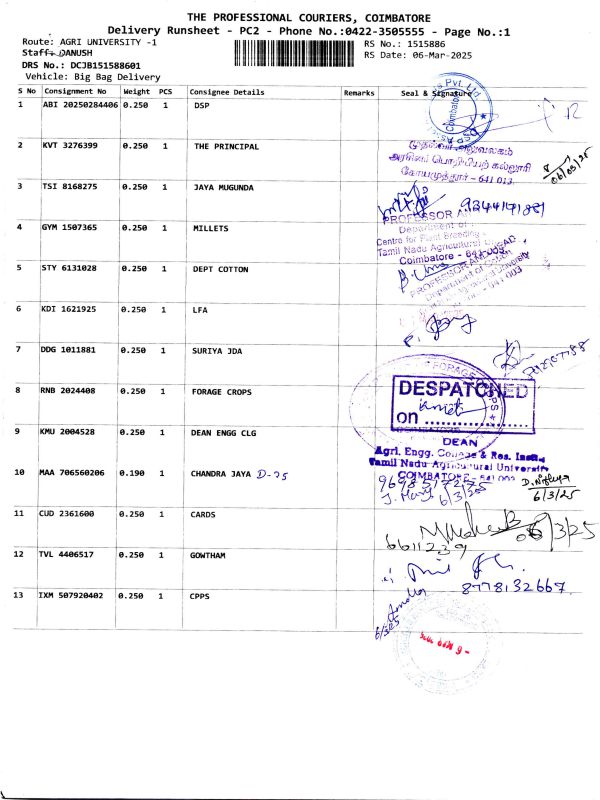 THE PROFESSIONAL COURIERS, COIMBATORE
Delivery Runsheet - PC2 - Phone No.:0422-3505555 - Page No.:1
Route: AGRI UNIVERSITY -1
RS No.: 1515886
Staff: DANUSH
RS Date: 06-Mar-2025
DRS No.: DCJB151588601
Vehicle: Big Bag Delivery
S No Consignment No Weight PCS Consignee Details Remarks Seal & Signature
1 ABI 20250284406 0.250 1 DSP
Pvt. Ltd
Coimbatore
2 KVT 3276399 0.250 1 THE PRINCIPAL
முதல்வர் அலுவலகம்
அரசினர் பொறியியற் கல்லூரி
கோயமுத்தூர் - 641 013
06/03/25
3 TSI 8168275 0.250 1 JAYA MUGUNDA
4 GYM 1507365 0.250 1 MILLETS
PROFESSOR AND
Department of
Centre for Plant Breeding
Tamil Nadu Agricultural
Coimbatore - 641 003
5 STY 6131028 0.250 1 DEPT COTTON
PROFESSOR AND HEAD
Department of Cotton
6 KDI 1621925 0.250 1 LFA
7 DDG 1011881 0.250 1 SURIYA JDA
8 RNB 2024408 0.250 1 FORAGE CROPS
FORAGE CROPS
DESPATCHED
on
9 KMU 2004528 0.250 1 DEAN ENGG CLG
DEAN
Agri. Engg. College & Res. Insti.
Tamil Nadu Agricultural University
COIMBATORE - 641 003
10 MAA 706560206 0.190 1 CHANDRA JAYA D-75
6/3/25
6/3/25
11 CUD 2361600 0.250 1 CARDS
6611239
6/3/25
12 TVL 4406517 0.250 1 GOWTHAM
8778132667
13 IXM 507920402 0.250 1 CPPS
6/3/25
- 6 MAR 2025